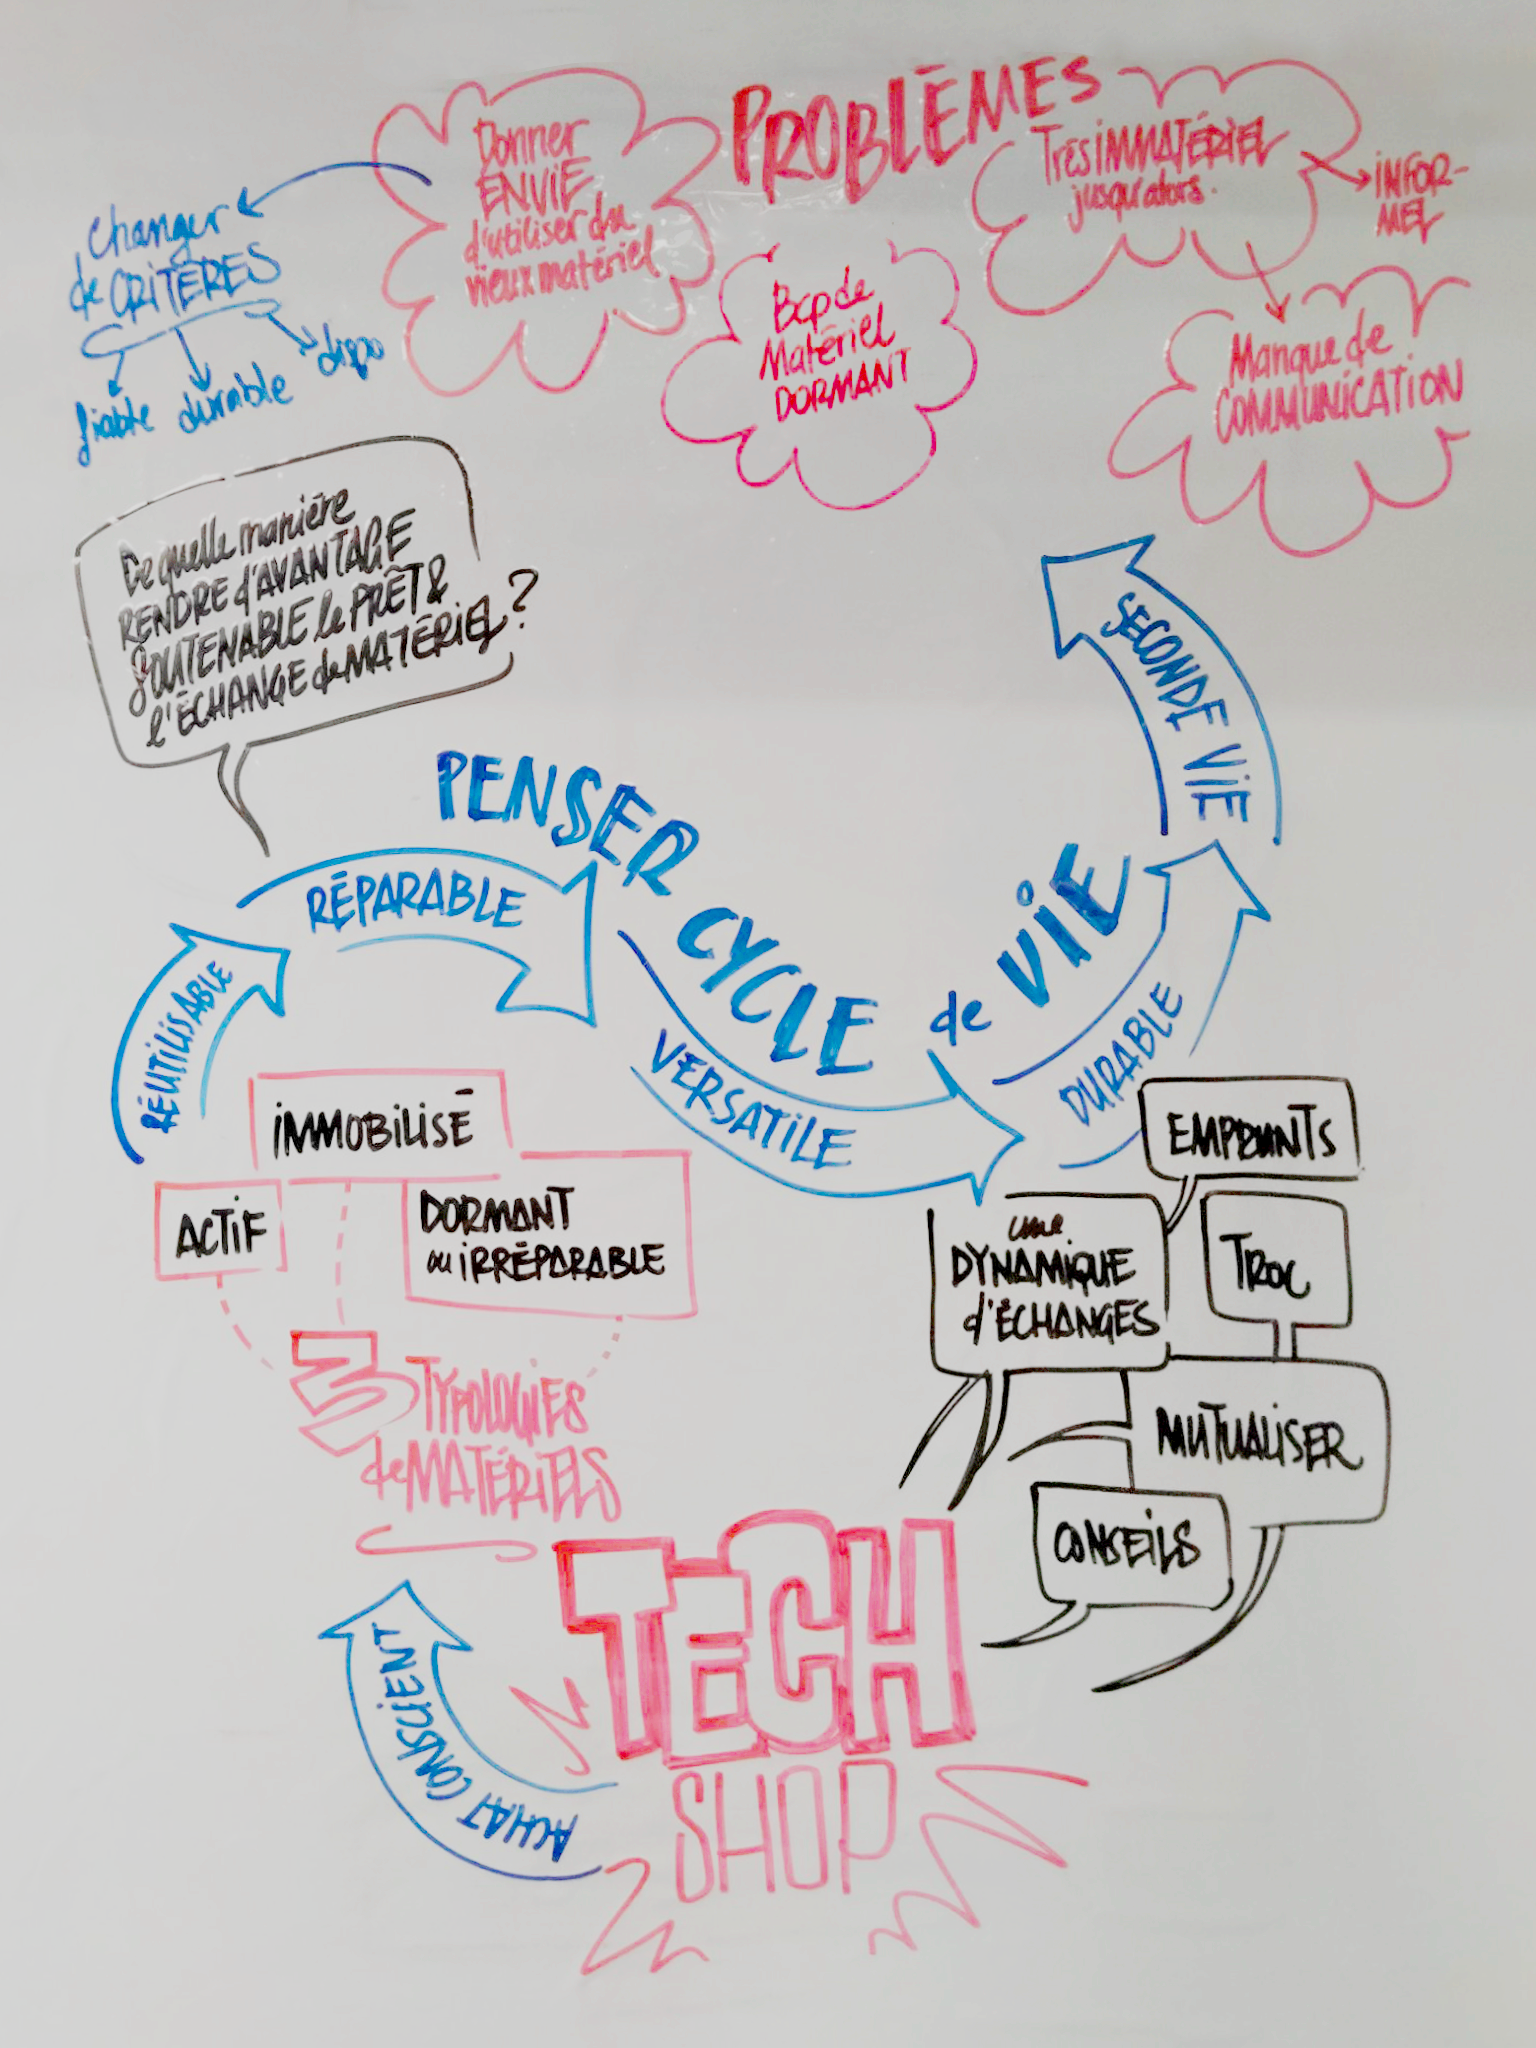 PROBLÈMES
Donner
ENVIE
d'utiliser du
vieux matériel
Changer
de CRITÈRES
fiable durable dispo
Bcp de
Matériel
DORMANT
Très IMMATÉRIEL
jusqu'alors.
INFOR-
MEL
Manque de
COMMUNICATION
De quelle manière
RENDRE d'AVANTAGE
SOUTENABLE le PRÊT &
l'ÉCHANGE de MATÉRIEL?
PENSER
CYCLE
de VIE
RÉUTILISABLE
RÉPARABLE
VERSATILE
DURABLE
SECONDE VIE
IMMOBILISÉ
ACTIF
DORMANT
ou IRRÉPARABLE
3 TYPOLOGIES
de MATÉRIELS
EMPRUNTS
une
DYNAMIQUE
d'ÉCHANGES
TROC
MUTUALISER
CONSEILS
TECH
SHOP
ACHAT CONSCIENT